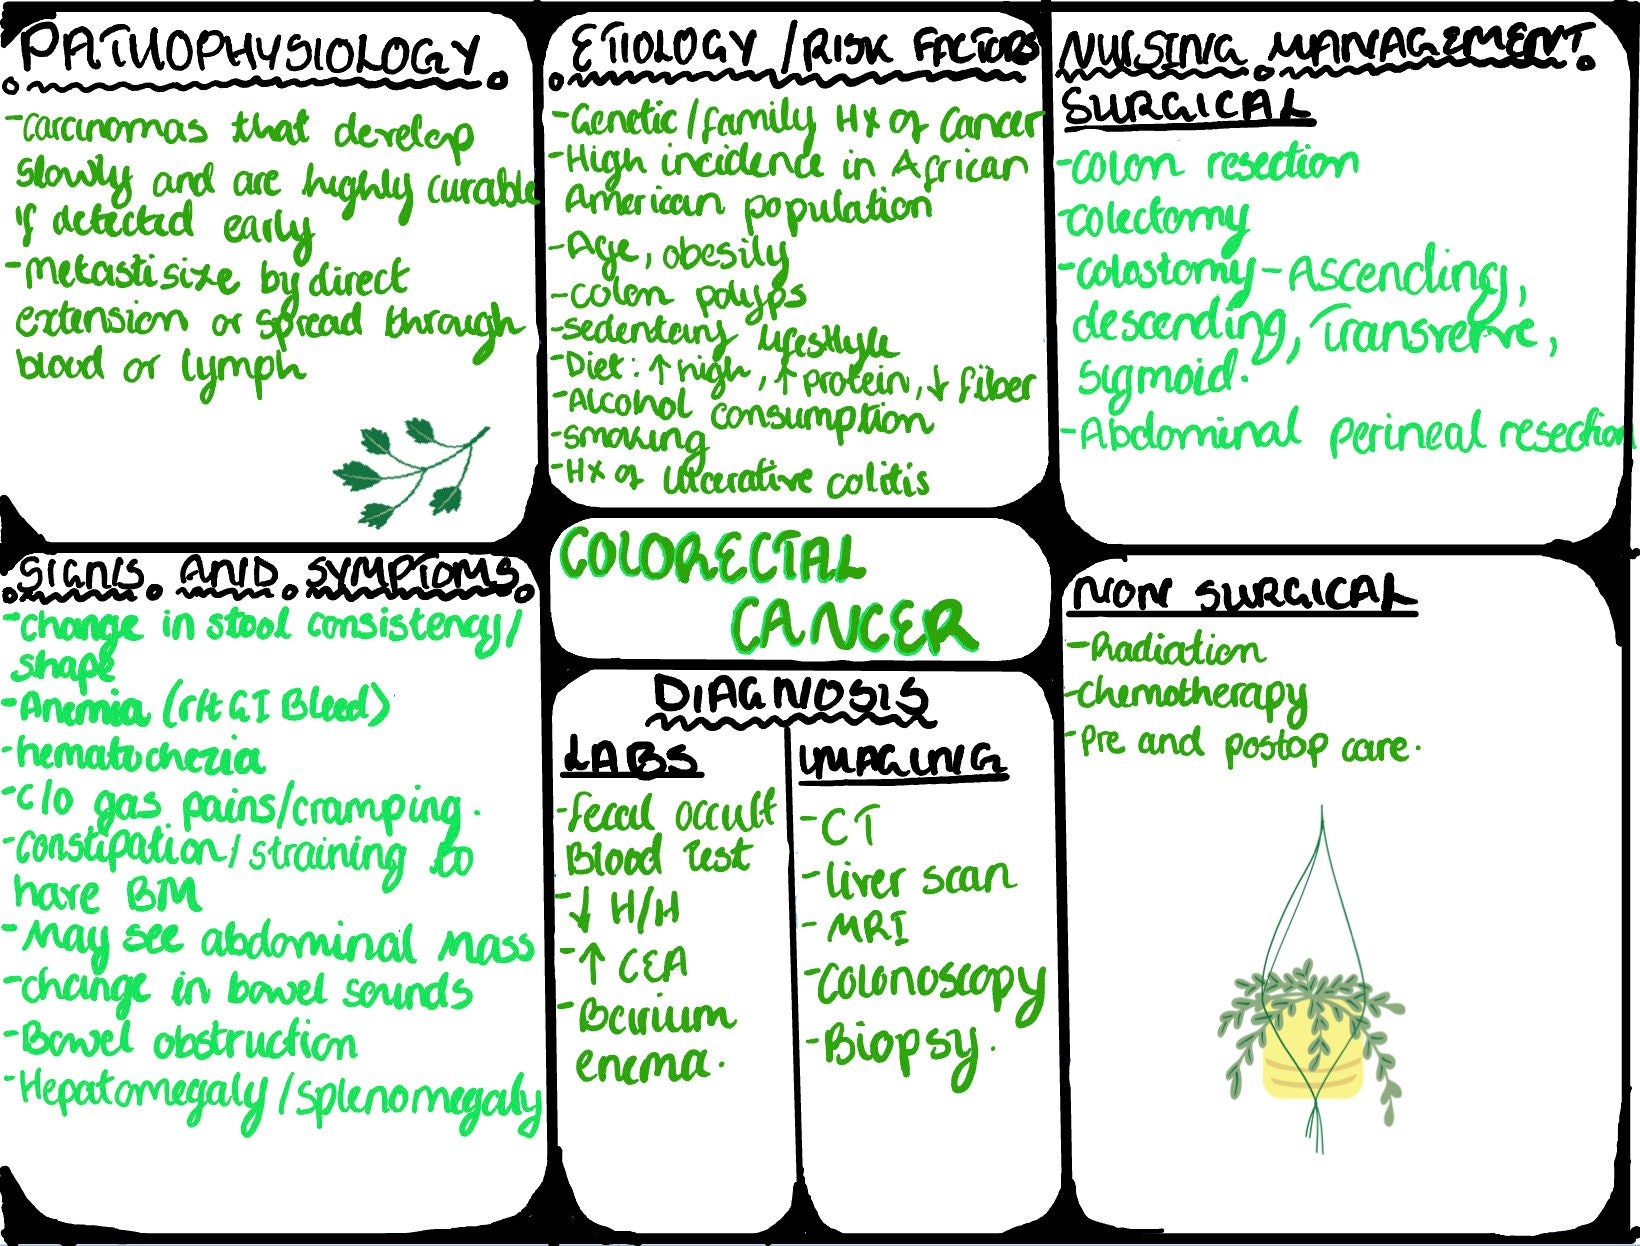 PATHOPHYSIOLOGY.
-carcinomas that develop
slowly and are highly curable
if detected early
-Metastisize by direct
extension or spread through
blood or lymph
ETIOLOGY / RISK FACTORS
-Genetic/family Hx of cancer
-High incidence in African
American population
-Age, obesity
-colon polyps
-sedentary lifesttyle
-Diet: ↑ high, ↑ protein, ↓ fiber
-Alcohol consumption
-smoking
-Hx of ulcerative colitis
NURSING MANAGEMENT.
SURGICAL
-colon resection
-colectomy
-colostomy - Ascending,
descending, Transverse,
sigmoid.
-Abdominal perineal resection
COLORECTAL
CANCER
SIGNS AND SYMPTOMS
-change in stool consistency/
shape
-Anemia (r/t GI Bleed)
-hematochezia
-c/o gas pains/cramping.
-constipation/straining to
have BM
-May see abdominal mass
-change in bowel sounds
-Bowel obstruction
-Hepatomegaly/splenomegaly
DIAGNOSIS
LABS
-fecal occult
Blood Test
-↓ H/H
-↑ CEA
-Barium
enema.
IMAGING
-CT
-liver scan
-MRI
-Colonoscopy
-Biopsy.
NON SURGICAL
-Radiation
-chemotherapy
-Pre and postop care.